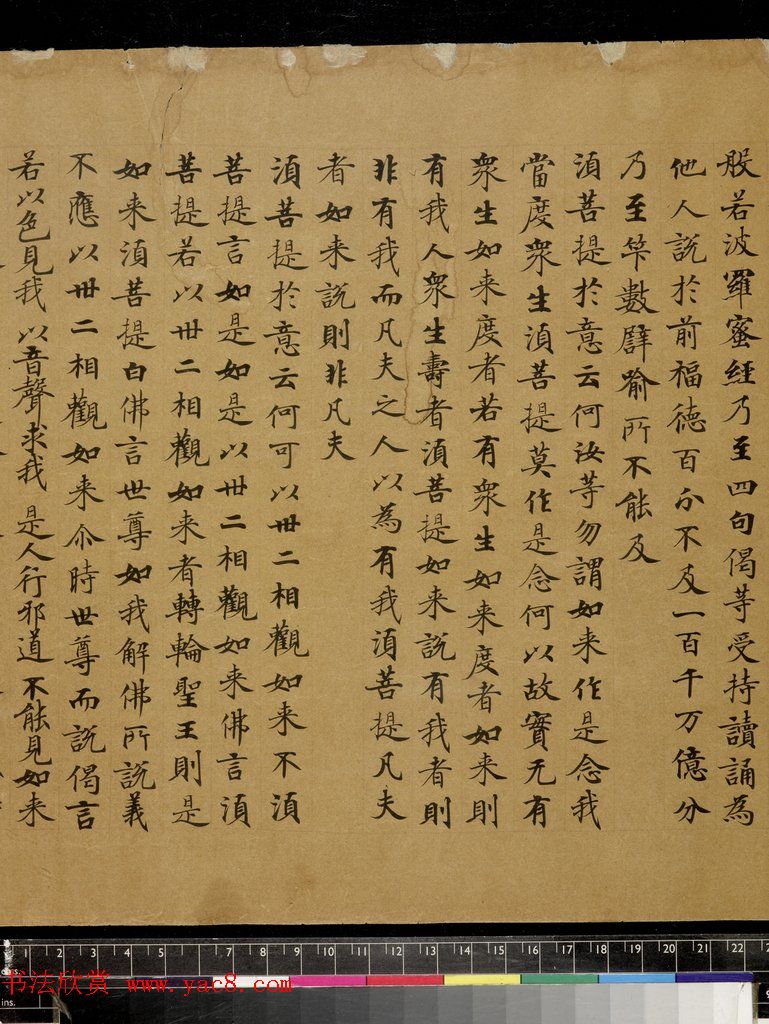 般若波羅蜜經乃至四句偈等受持讀誦為
他人說於前福德百分不及一百千万億分
乃至筭數譬喻所不能及
須菩提於意云何汝等勿謂如来作是念我
當度衆生須菩提莫作是念何以故實无有
衆生如来度者若有衆生如来度者如来則
有我人衆生壽者須菩提如来說有我者則
非有我而凡夫之人以為有我須菩提凡夫
者如来說則非凡夫
須菩提於意云何可以卅二相觀如来不須
菩提言如是如是以卅二相觀如来佛言須
菩提若以卅二相觀如来者轉輪聖王則是
如来須菩提白佛言世尊如我解佛所說義
不應以卅二相觀如来尒時世尊而說偈言
若以色見我以音聲求我是人行邪道不能見如来
1 2 3 4 5 7 8 9 10 11 12 13 14 15 16 17 18 19 20 21 22
cms.
ins.
书法欣赏 www.yac8.com